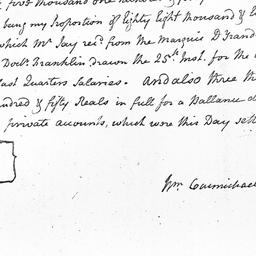 five thousand one hundred &
being my Proportion of Eighty Eight thousand &
which Mr Jay recd from the Marquis D'
Doctr Franklin drawn the 25th Inst. for the
last Quarters Salaries. And also three
& fifty Reals in full for a Ballance
private accounts, which were this Day
Wm Carmichael